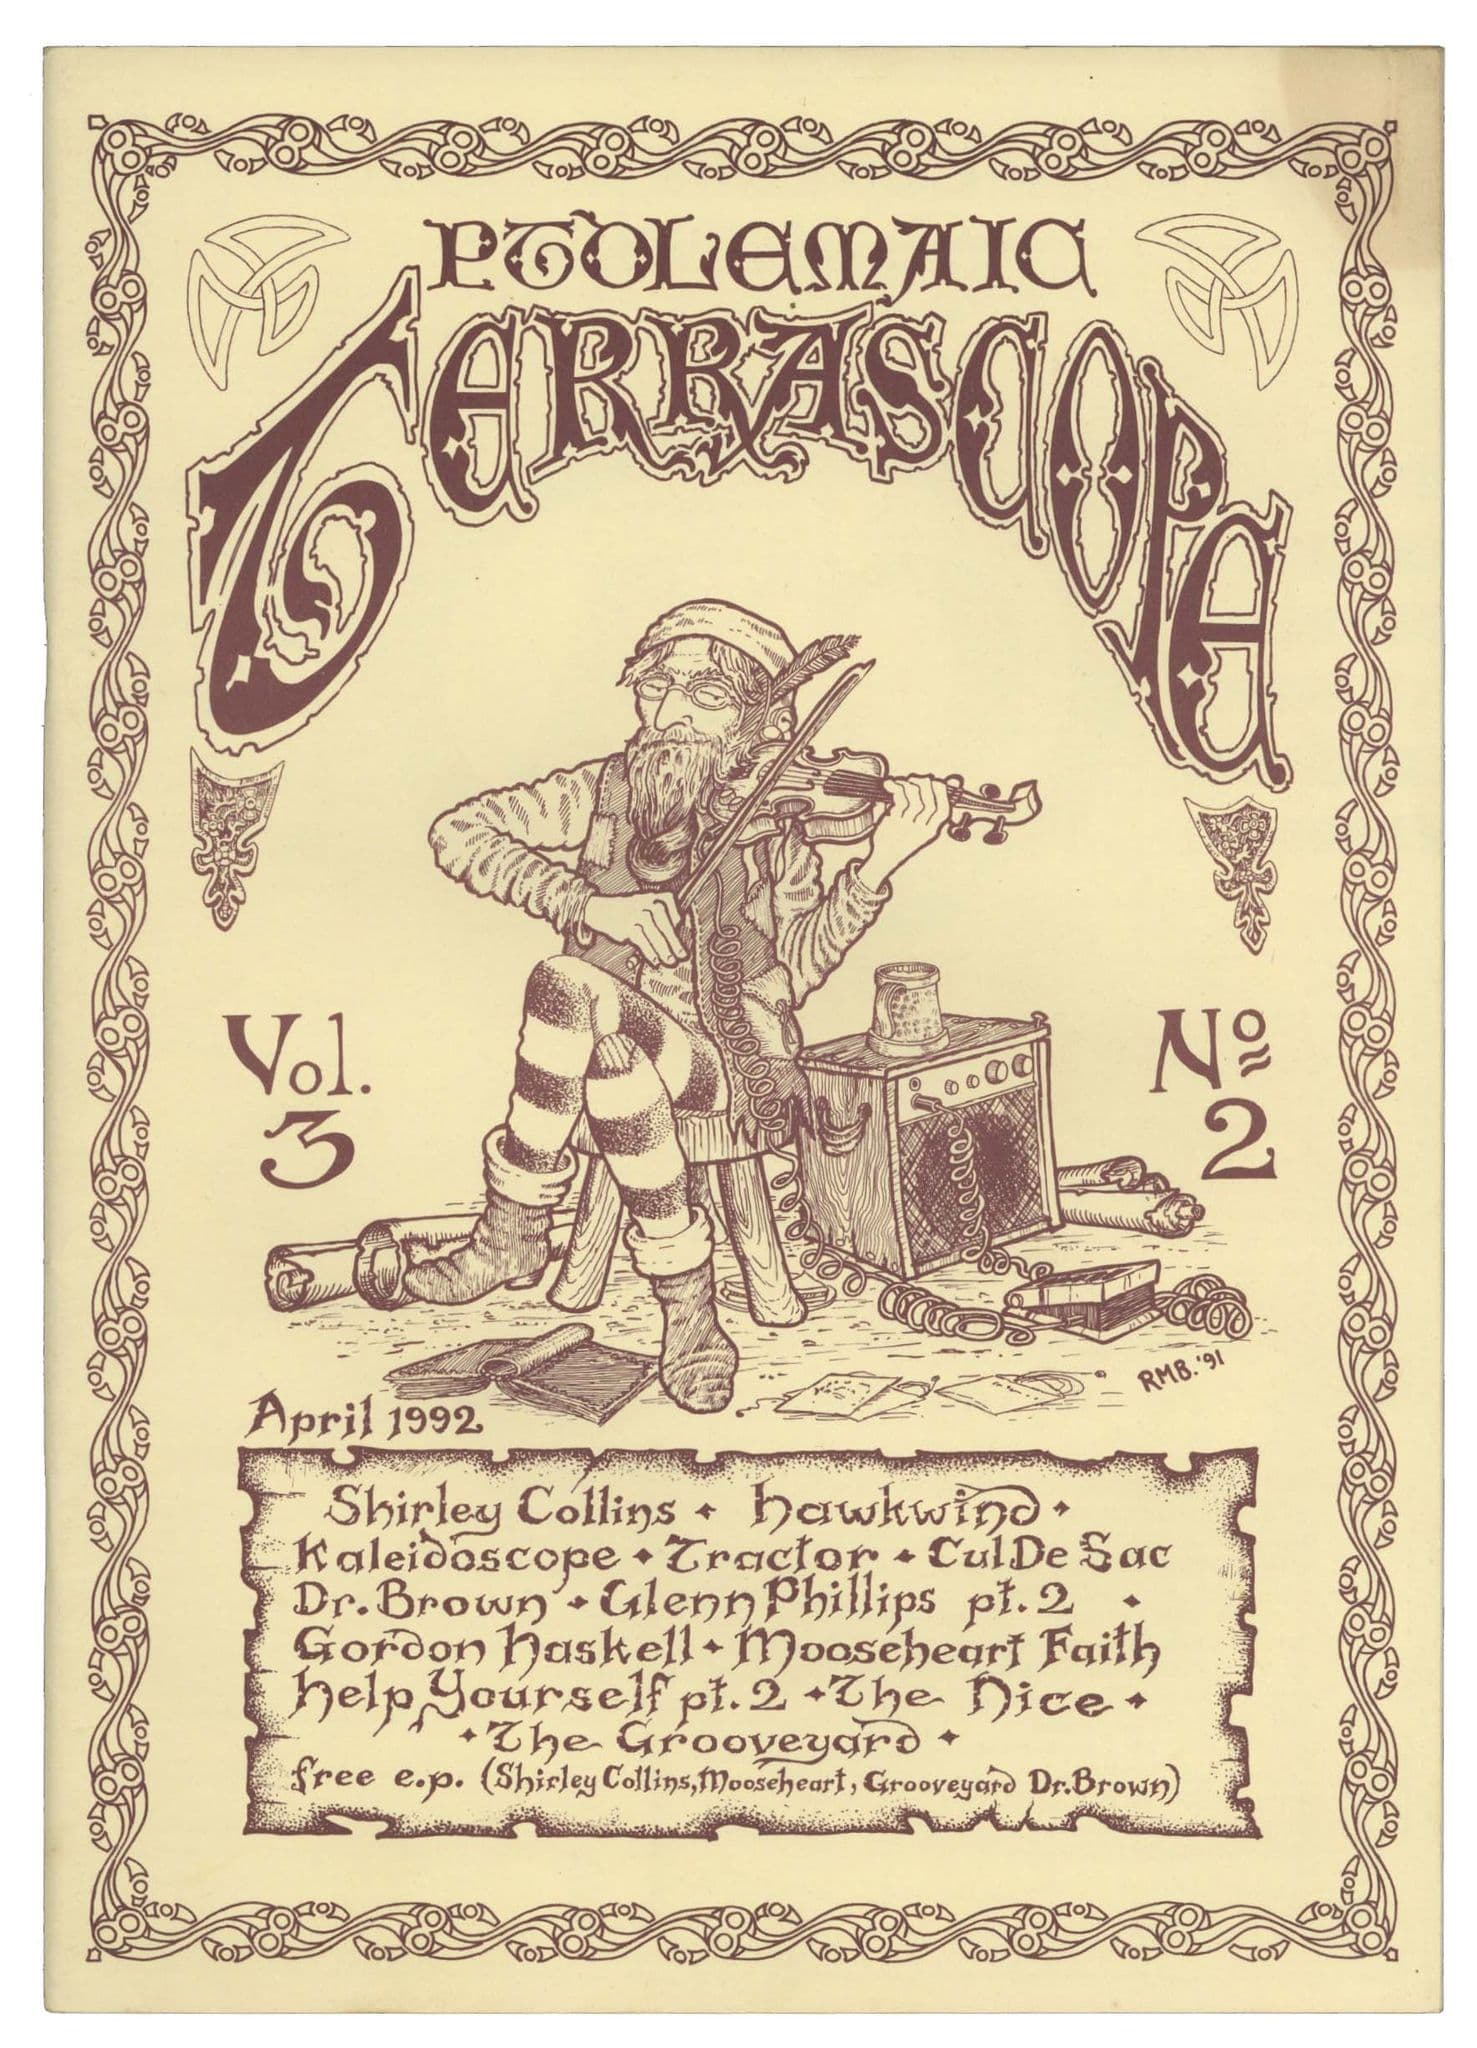 PTOLEMAIC
TERRASCOPE
Vol.
3
Nº
2
RMB.'91
April 1992
Shirley Collins • Hawkwind •
Kaleidoscope • Tractor • Cul De Sac
Dr. Brown • Glenn Phillips pt. 2 •
Gordon Haskell • Mooseheart Faith
Help Yourself pt. 2 • The Nice •
• The Grooveyard •
free e.p. (Shirley Collins, Mooseheart, Grooveyard Dr. Brown)